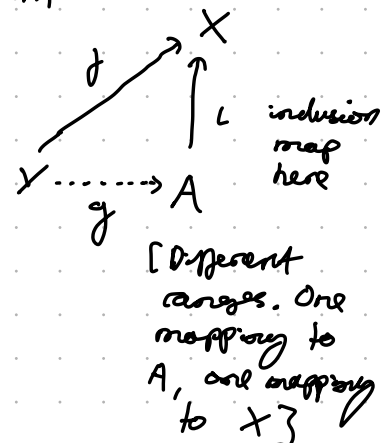 X
f
ι inclusion
map
here
Y A
g
[Different
ranges. One
mapping to
A, one mapping
to X]